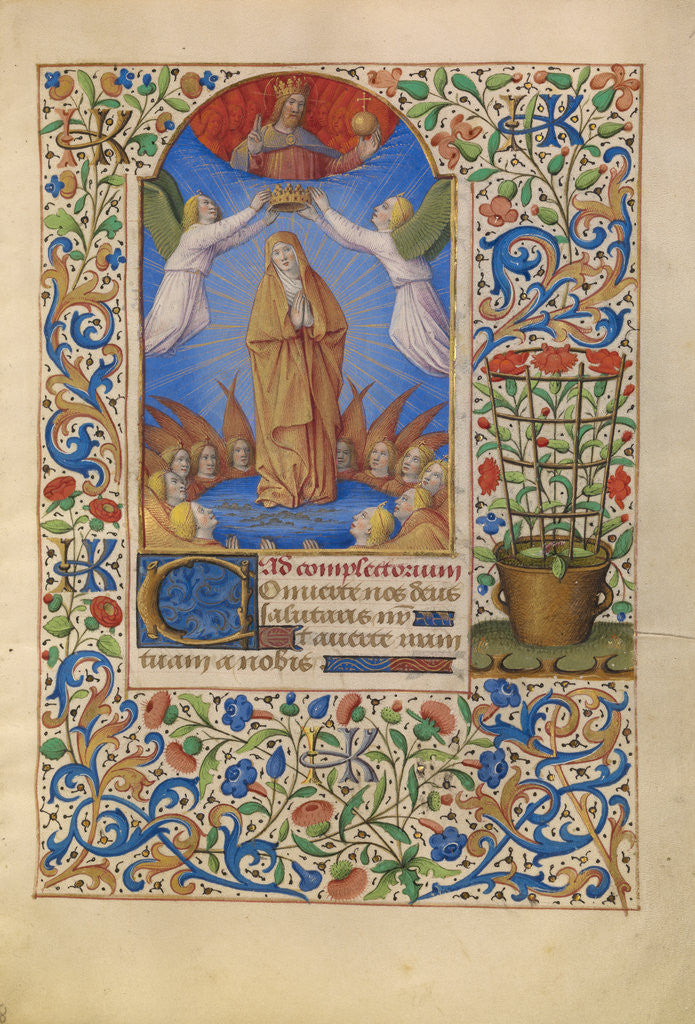 IK
IK
Ad completorium
Converte nos deus
salutaris nr̄
Et averte iram
tuam a nobis
IK
IK